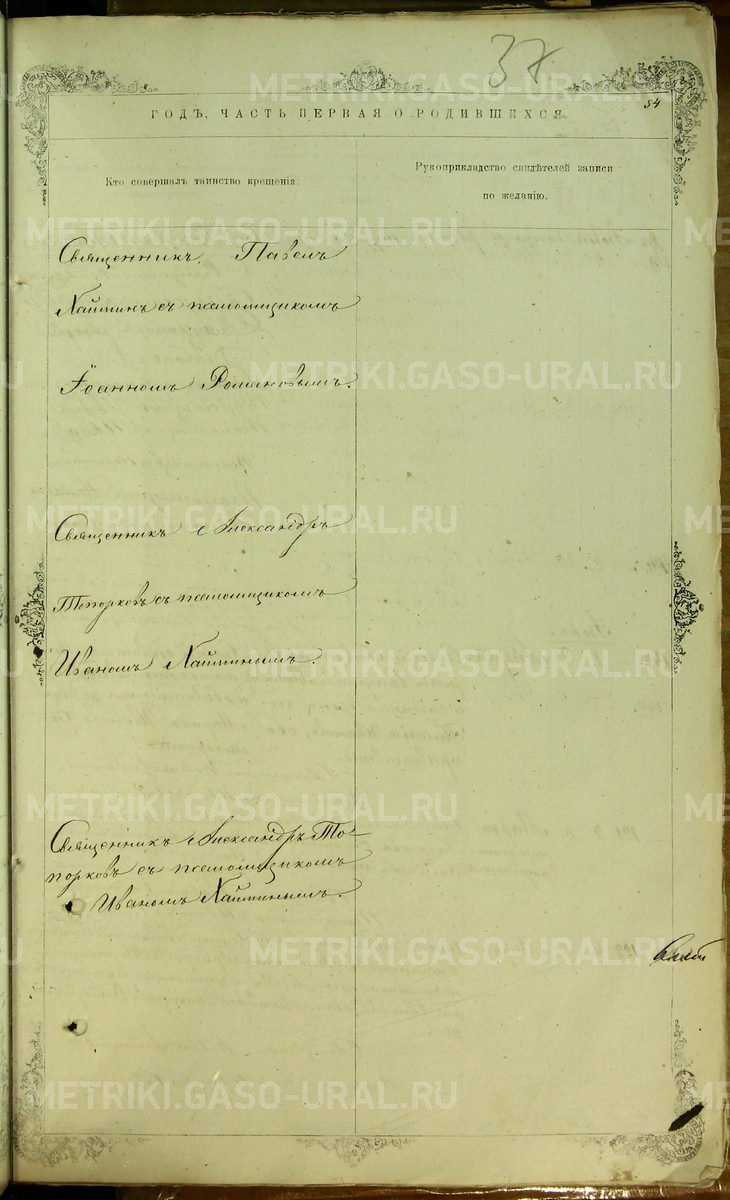 37
84
ГОДЪ, ЧАСТЬ ПЕРВАЯ О РОДИВШИХСЯ.
Кто совершалъ таинство крещенія.
Рукоприкладство свидѣтелей записи
по желанію.
Священникъ Павелъ
съ псаломщикомъ
Іоанномъ Романовымъ.
Священникъ Александръ
Топорковъ съ псаломщикомъ
Иваномъ
Священникъ Александръ То-
порковъ съ псаломщикомъ
Иваномъ
METRIKI.GASO-URAL.RU